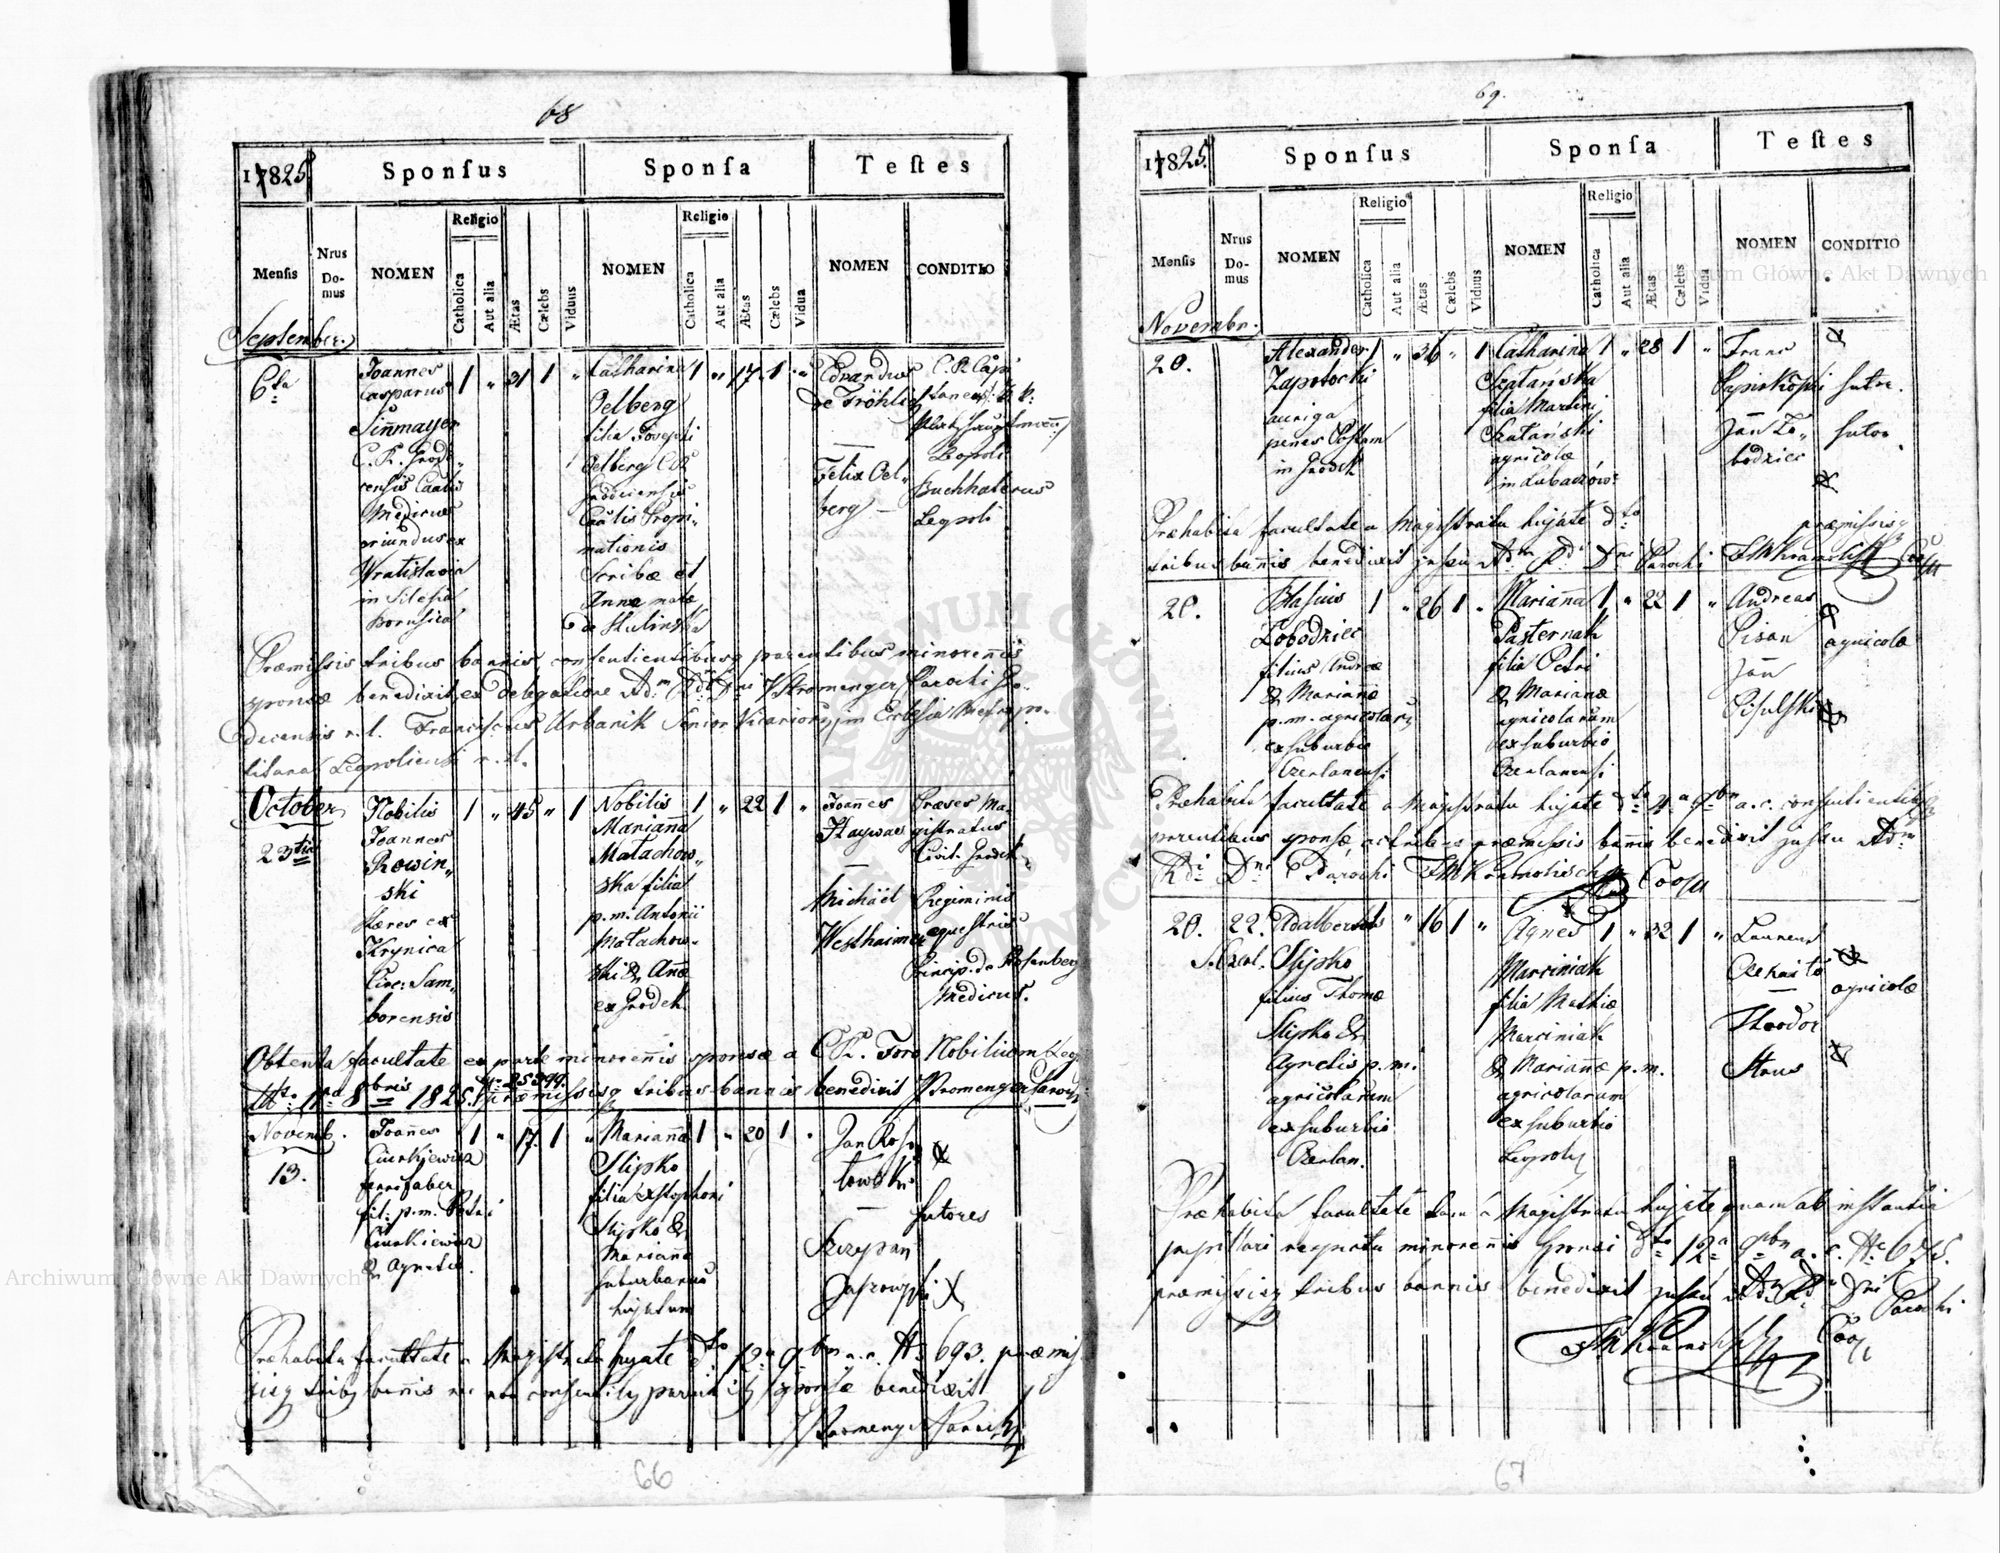 68
1825.
Sponsus
Sponsa
Testes
Mensis
Nrus Do-mus
NOMEN
Religio
Catholica
Aut alia
Ætas
Cælebs
Viduus
NOMEN
Religio
Catholica
Aut alia
Ætas
Cælebs
Vidua
NOMEN
CONDITIO
September.
6ta
Joannes
Casparus
Siñmayer
C. R. Grode-
censis Caalis
Medicus
oriundus ex
Vratislavia
in Silesia
Borussica
1 " 31 1 "
Catharina
Oelberg
filia Josephi
Oelberg C.R.
Grodecensis
Caalis Propi-
nationis
Scribæ et
Annæ natæ
de Hulinska
1 " 17 1 "
Edvardus
de Fröhlich
Felix Oel-
berg
C. R. Capi
taneus
Leopoli
Buchhalterus
Leopoli
Præmissis tribus bannis, consentientibusq parentibus minoreñis
sponsæ benedixit, ex delegatione Adm Rdi Dni Stromenger Parochi Gro-
decensis r. l. Franciscus Urbanik Senior Vicariorum Ecclesiæ Metropo-
litanæ Leopoliensis r. l.
October
23tia
Nobilis
Joannes
Rowin-
ski
Hæres ex
Krynica
Circ: Sam-
borensis
1 " 45 " 1
Nobilis
Mariaña
Matachow-
ska filia
p.m. Antonii
Matachow-
ski & Añæ
ex Grodek
1 " 22 1 "
Joañes
Haywas
Michäel
Westhaimer
Præses Ma-
gistratus
Civit. Grodek
Regiminis
equestris
Princip. de Rosenberg
Medicus.
Obtenta facultate ex parte minoreñis sponsæ a C.R. Foro Nobilium Leop
dto 11ma 8bris 1825. N 25399. præmissisq tribus bannis benedixit Stromenger Paroch
Novemb.
13.
Joañes
Ciurkiewicz
ferrifaber
fil: p.m. Petri
Ciurkiewicz
& Agnetis.
1 " 17. 1 "
Mariaña
Slipko
filia Xstophori
Slipko &
Marianæ
suburbanus
hujatum
1 " 20 1 "
Jan Ros
towski
Szczypan
sutores
Præhabita facultate a Magistratu hujate dto 12a 9bris a.c. N. 693. præmis-
sisq tribq bañis nec non consentibq parentibq sponsæ benedixit
Stromenger Paroch
66
69.
1825.
Sponsus
Sponsa
Testes
Mensis
Nrus Do-mus
NOMEN
Religio
Catholica
Aut alia
Ætas
Cælebs
Viduus
NOMEN
Religio
Catholica
Aut alia
Ætas
Cælebs
Vidua
NOMEN
CONDITIO
Novembr.
20.
Alexander
Zapotocki
auriga
penes Postam
in Grodek
1 " 36 " 1
Catharina
Szatańska
filia Martini
Szatański
agricolæ
in Lubaczow
1 " 28 1 "
Franc
Jañ Ło-
bodziec
sutor.
sutor
Præhabita facultate a Magistratu hujate dto præmissisq
tribus bañis benedixit jussu Adm Rdi Dni Parochi
20.
Blasius
Łobodziec
filius Andreæ
& Mariañæ
p.m. agricolarum
ex suburbio
Czerlanensi
1 " 26 1 "
Mariaña
Pasternak
filia Petri
& Marianæ
agricolarum
ex suburbio
Czerlanensi
1 " 22 1 "
Andreas
Pisan
Jañ
Pisulski
agricolæ
Præhabita facultate a Magistratu hujate dto 9bris a.c. consentientibq
parentibus sponsæ ac tribus præmissis bañis benedixit jussu Adm
Rdi Dni Parochi Coop
20.
22.
Adalbertus
Slipko
filius Thomæ
Slipko &
Agnetis p.m.
agricolarum
ex suburbio
Czerlan.
" 16 1 "
Agnes
Marciniak
filia Mathiæ
Marciniak
& Mariañæ p.m.
agricolarum
ex suburbio
Leopoly
1 " 32 1 "
Laurens
Theodor
agricolæ
Præhabita facultate tam a Magistratu hujate quam ab instantia
pupillari respectu minoreñis sponsi dto 12a 9bris a. c. N. 675.
præmissisq tribus bannis benedixit jussu Adm Rdi Dni Parochi
Coop
67
Archiwum Główne Akt Dawnych
Archiwum Główne Akt Dawnych